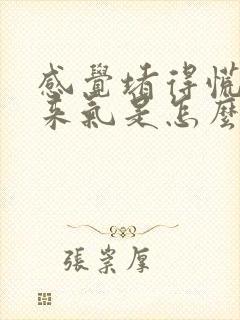 感覺堵得慌
來氣是怎麼
張崇厚